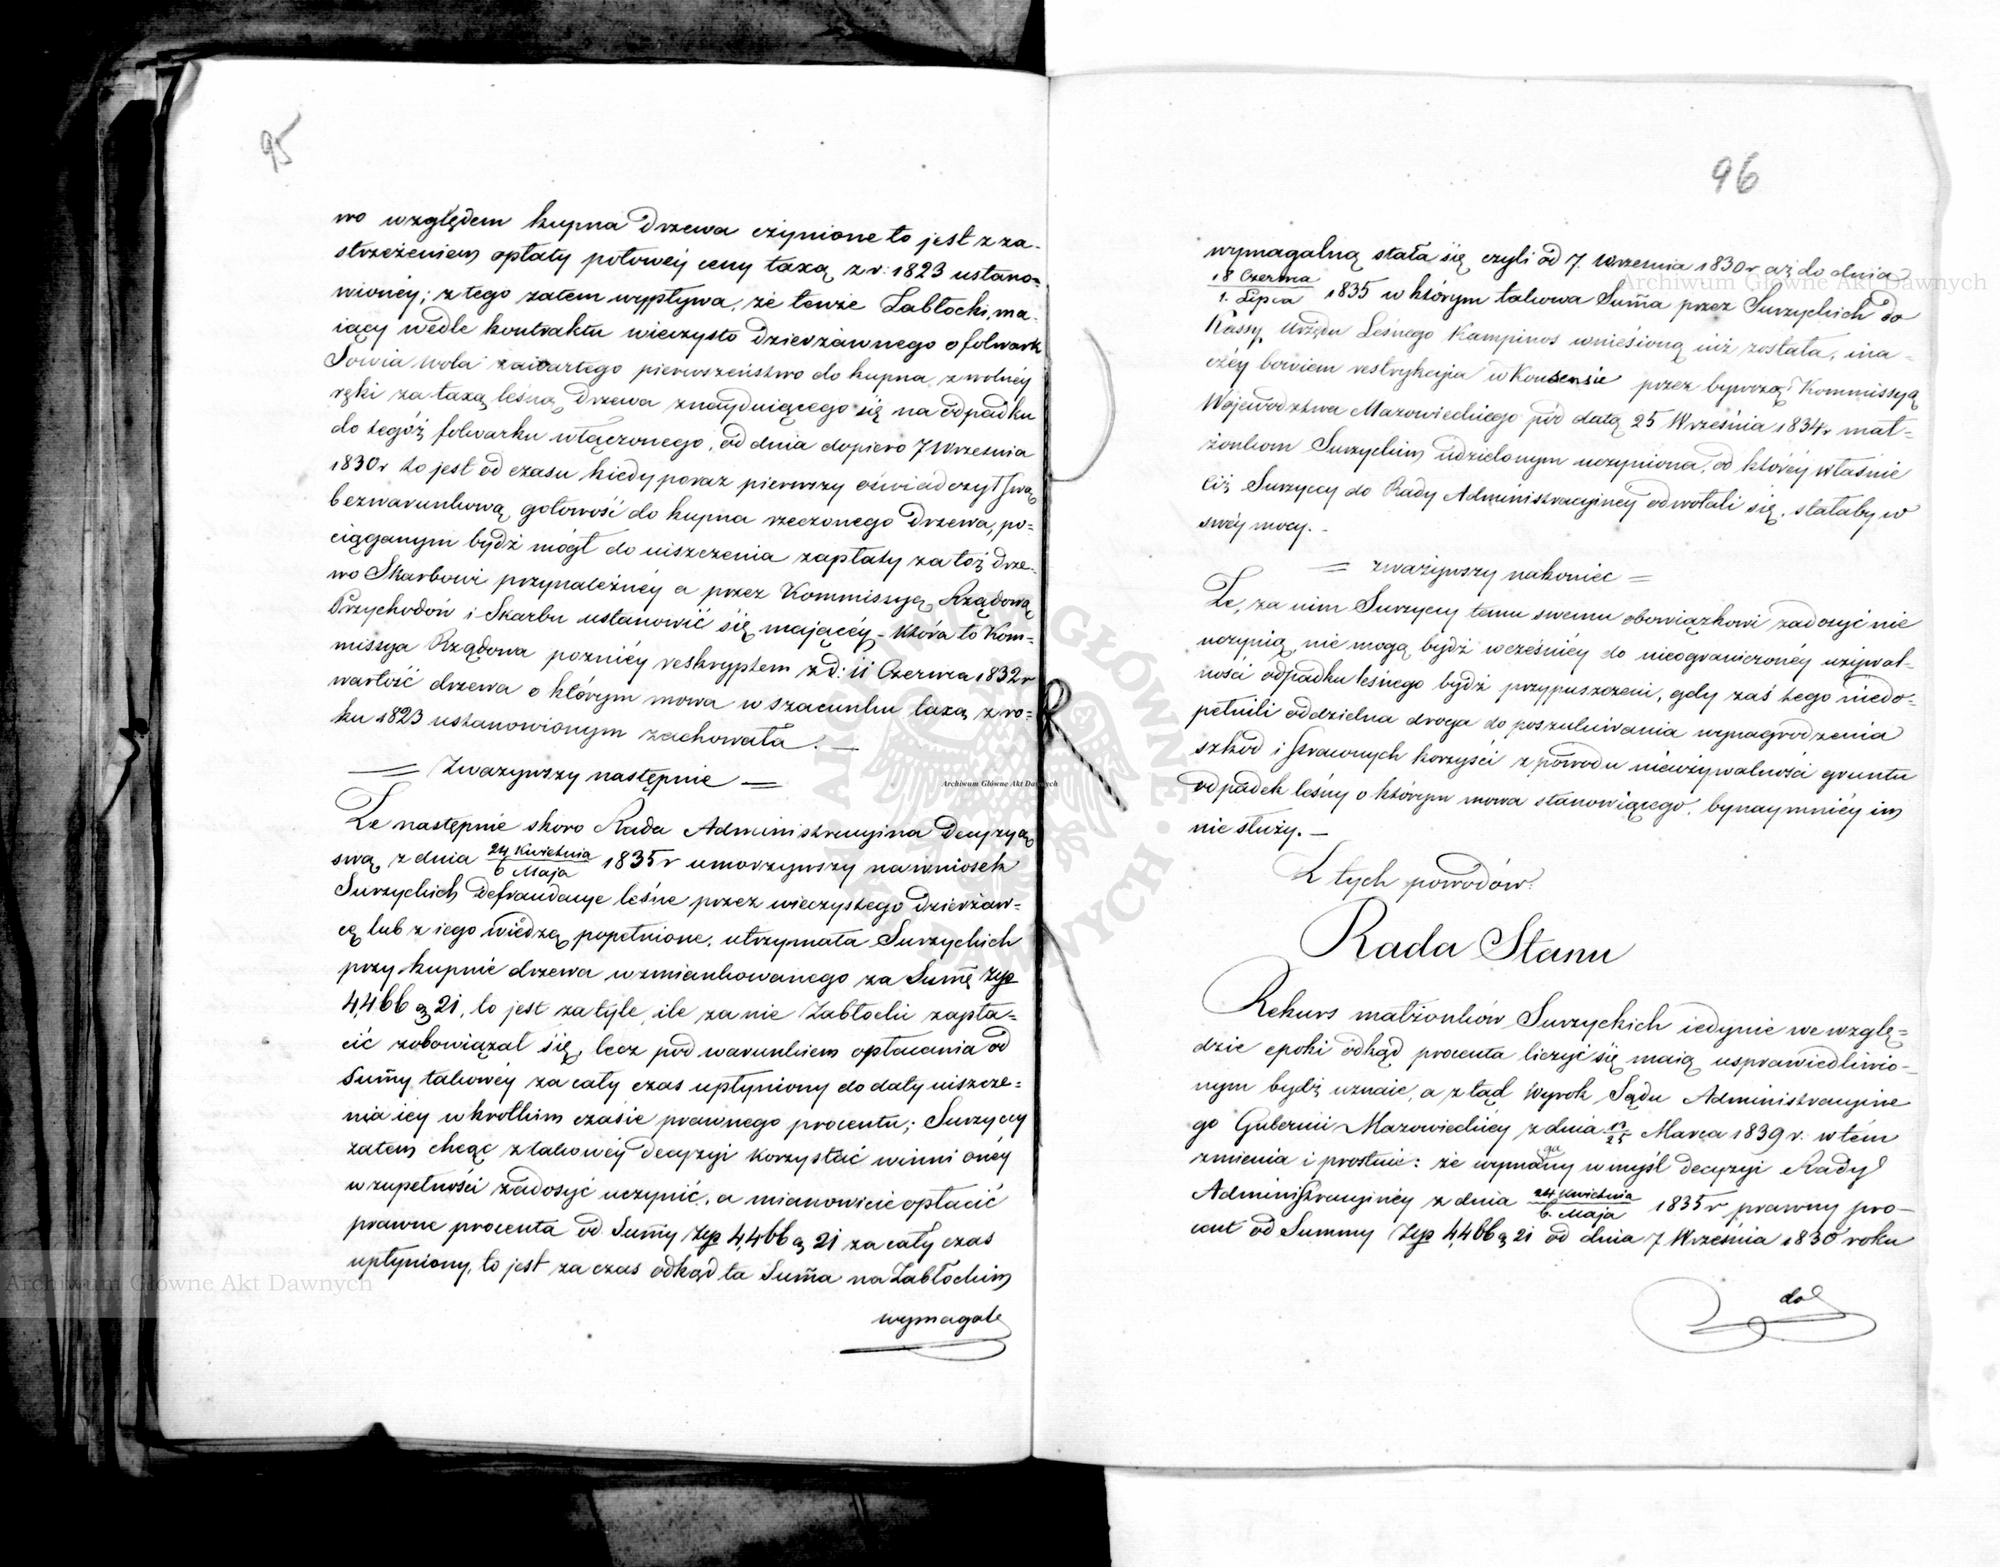 95
wo względem kupna Drzewa czynione to jest z za-
strzeżeniem opłaty połowéy ceny taxą z r: 1823 ustano-
wionéy; z tego zatem wypływa, że tenże Zabłocki, ma-
iący wedle kontraktu wieczysto dzierżawnego o folwark
Sowia wola zawartego pierwszeństwo do kupna, z wolnéy
ręki za taxą leśną Drzewa znayduiącego się na odpadku
do tegóż folwarku włączonego, od dnia dopiero 7 Września
1830 r to jest od czasu kiedy poraz pierwszy oświadczył swą
bezwarunkową gotowość do kupna rzeczonego Drzewa, po-
ciąganym bydź mógł do uiszczenia zapłaty za toż drze-
wo Skarbowi przynależnéy a przez Kommissyą Rządową
Przychodów i Skarbu ustanowić się maiącéy – która to Kom-
missya Rządowa poźniéy reskryptem z d: 11 Czerwca 1832 r
wartość drzewa o którym mowa w szacunku taxą z ro-
ku 1823 ustanowionym zachowała. —
= Zważywszy następnie =
Że następnie skoro Rada Administracyina Decyzyą
swą z dnia 24 Kwietnia / 6 Maja 1835 r umorzywszy na wniosek
Surzyckich Defraudacye leśne przez wieczystego dzierżaw-
cę lub z iego wiedzą popełnione, utrzymała Surzyckich
przy kupnie drzewa wzmiankowanego za Summę Złp
4,466 g 21, to jest za tyle, ile za nie Zabłocki zapła-
cić zobowiązał się, lecz pod warunkiem opłacania od
Summy takowéy za cały czas upłyniony do daty uiszcze-
nia iéy w krótkim czasie prawnego procentu; Surzyccy
zatem chcąc z takowéy decyzyi korzystać winni onéy
w zupełności zadosyć uczynić, a mianowicie opłacić
prawne procenta od Summy Złp 4,466 g 21 za cały czas
upłyniony, to jest za czas odkąd ta Summa na Zabłockim
wymagal
96
wymagalną stała się czyli od 7. Września 1830 r aż do dnia
18 Czerwca / 1. Lipca 1835 w którym takowa Summa przez Surzyckich do
Kassy Urzędu Leśnego Kampinos wniesioną iuż została, ina-
czéy bowiem restrykcyia w Konsensie przez bywszą Kommissyą
Województwa Mazowieckiego pod datą 25 Września 1834 r mał-
żonkom Surzyckim udzielonym uczyniona, od któréy właśnie
ciż Surzyccy do Rady Administracyinéy odwołali się, stałaby w
swéy mocy. –
= zważywszy nakoniec =
Że, za nim Surzyccy temu swemu obowiązkowi zadosyć nie
uczynią, nie mogą bydź wcześniéy do nieograniczonéy używal-
ności odpadku leśnego bydź przypuszczeni, gdy zaś tego niedo-
pełnili oddzielna droga do poszukiwania wynagrodzenia
szkód i straconych korzyści z powodu nieużywalności gruntu
odpadek leśny o którym mowa stanowiącego, bynaymniéy im
nie służy. —
Z tych powodów:
Rada Stanu
Rekurs małżonków Surzyckich iedynie we wzglę-
dzie epoki odkąd procenta liczyć się maią usprawiedliwio-
nym bydź uznaie, a ztąd Wyrok Sądu Administracyine
go Gubernii Mazowieckiéy z dnia 13/25 Marca 1839 r. w tém
zmienia i prostuie: że wymagany w myśl decyzyi Rady
Administracyinéy z dnia 24 Kwietnia / 6. Maja 1835 r prawny pro-
cent od Summy Złp 4,466 g 21 od dnia 7 Września 1830 roku
do
Archiwum Główne Akt Dawnych
Archiwum Główne Akt Dawnych
Archiwum Główne Akt Dawnych